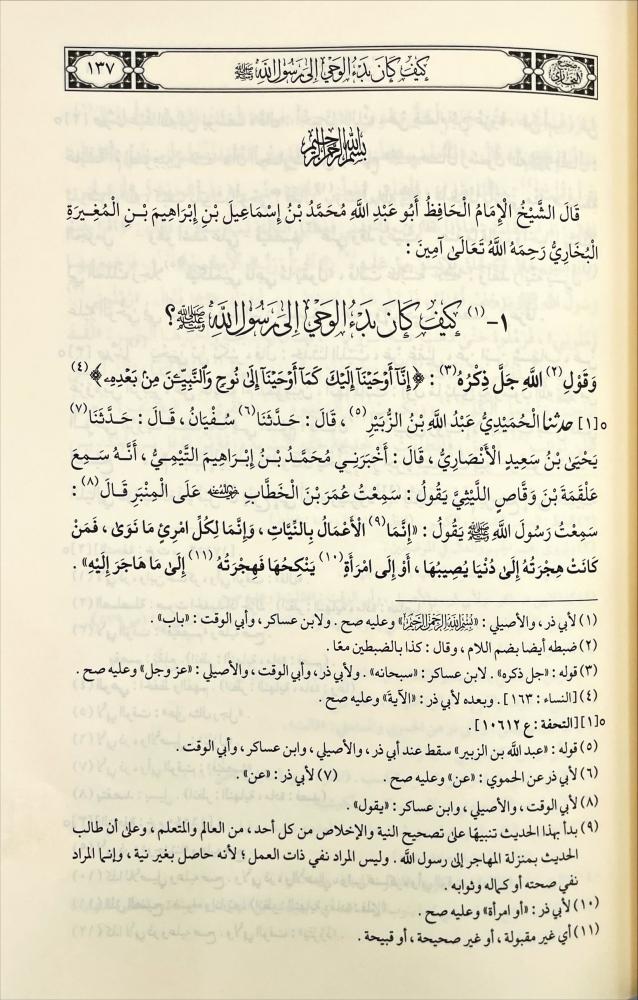 كيف كان بدء الوحي إلى رسول الله ﷺ ١٣٧
بسم الله الرحمن الرحيم
قَالَ الشَّيْخُ الْإِمَامُ الْحَافِظُ أَبُو عَبْدِ اللَّهِ مُحَمَّدُ بْنُ إِسْمَاعِيلَ بْنِ إِبْرَاهِيمَ بْنِ الْمُغِيرَةِ
الْبُخَارِيُّ رَحِمَهُ اللَّهُ تَعَالَى آمِينَ :
١- (١) كَيْفَ كَانَ بَدْءُ الْوَحْيِ إِلَى رَسُولِ اللَّهِ ﷺ ؟
وَقَوْلِ (٢) اللَّهِ جَلَّ ذِكْرُهُ (٣) : ﴿إِنَّآ أَوْحَيْنَآ إِلَيْكَ كَمَآ أَوْحَيْنَآ إِلَىٰ نُوحٍ وَالنَّبِيِّـۧنَ مِنۢ بَعْدِهِۦ﴾ (٤)
٥ [١] حدثنا الْحُمَيْدِيُّ عَبْدُ اللَّهِ بْنُ الزُّبَيْرِ (٥) ، قَالَ : حَدَّثَنَا (٦) سُفْيَانُ ، قَالَ : حَدَّثَنَا (٧)
يَحْيَى بْنُ سَعِيدٍ الْأَنْصَارِيُّ ، قَالَ : أَخْبَرَنِي مُحَمَّدُ بْنُ إِبْرَاهِيمَ التَّيْمِيُّ ، أَنَّهُ سَمِعَ
عَلْقَمَةَ بْنَ وَقَّاصٍ اللَّيْثِيَّ يَقُولُ : سَمِعْتُ عُمَرَ بْنَ الْخَطَّابِ رضي الله عنه عَلَى الْمِنْبَرِ قَالَ (٨) :
سَمِعْتُ رَسُولَ اللَّهِ ﷺ يَقُولُ : «إِنَّمَا (٩) الْأَعْمَالُ بِالنِّيَّاتِ ، وَإِنَّمَا لِكُلِّ امْرِئٍ مَا نَوَى ، فَمَنْ
كَانَتْ هِجْرَتُهُ إِلَى دُنْيَا يُصِيبُهَا ، أَوْ إِلَى امْرَأَةٍ (١٠) يَنْكِحُهَا فَهِجْرَتُهُ (١١) إِلَى مَا هَاجَرَ إِلَيْهِ» .
(١) لأبي ذر ، والأصيلي : «بسم الله الرحمن الرحيم» وعليه صح . ولابن عساكر ، وأبي الوقت : «باب» .
(٢) ضبطه أيضا بضم اللام ، وقال : كذا بالضبطين معًا .
(٣) قوله : «جل ذكره» . لابن عساكر : «سبحانه» . ولأبي ذر ، وأبي الوقت ، والأصيلي : «عز وجل» وعليه صح .
(٤) [النساء : ١٦٣] . وبعده لأبي ذر : «الآية» وعليه صح .
٥ [١] [التحفة : ع ١٠٦١٢] .
(٥) قوله : «عبد الله بن الزبير» سقط عند أبي ذر ، والأصيلي ، وابن عساكر ، وأبي الوقت .
(٦) لأبي ذر عن الحموي : «عن» وعليه صح . (٧) لأبي ذر : «عن» .
(٨) لأبي الوقت ، والأصيلي ، وابن عساكر : «يقول» .
(٩) بدأ بهذا الحديث تنبيهًا على تصحيح النية والإخلاص من كل أحد ، من العالم والمتعلم ، وعلى أن طالب
الحديث بمنزلة المهاجر إلى رسول الله . وليس المراد نفي ذات العمل ؛ لأنه حاصل بغير نية ، وإنما المراد
نفي صحته أو كماله وثوابه .
(١٠) لأبي ذر : «أو امرأة» وعليه صح .
(١١) أي غير مقبولة ، أو غير صحيحة ، أو قبيحة .